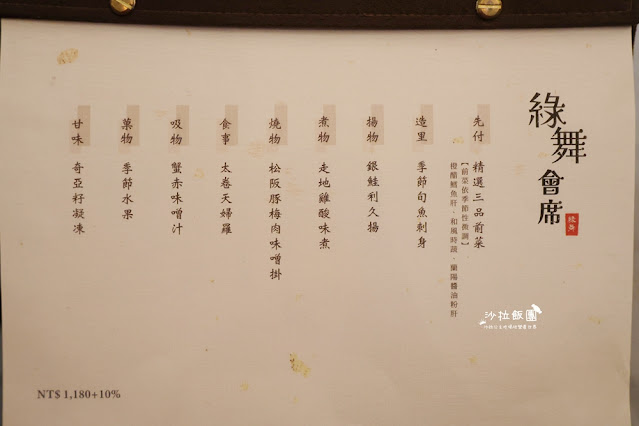 綠舞會席
綠舞
先付 精選三品前菜
【前菜依季節性微調】
橙醋鱈魚肝．和風時蔬．蘭陽醬油粉肝
造里 季節旬魚刺身
揚物 銀鮭利久揚
煮物 走地雞酸味煮
燒物 松阪豚梅肉味噌掛
食事 太卷天婦羅
吸物 蟹赤味噌汁
菓物 季節水果
甘味 奇亞籽凝凍
NT$ 1,180+10%
沙拉飯團